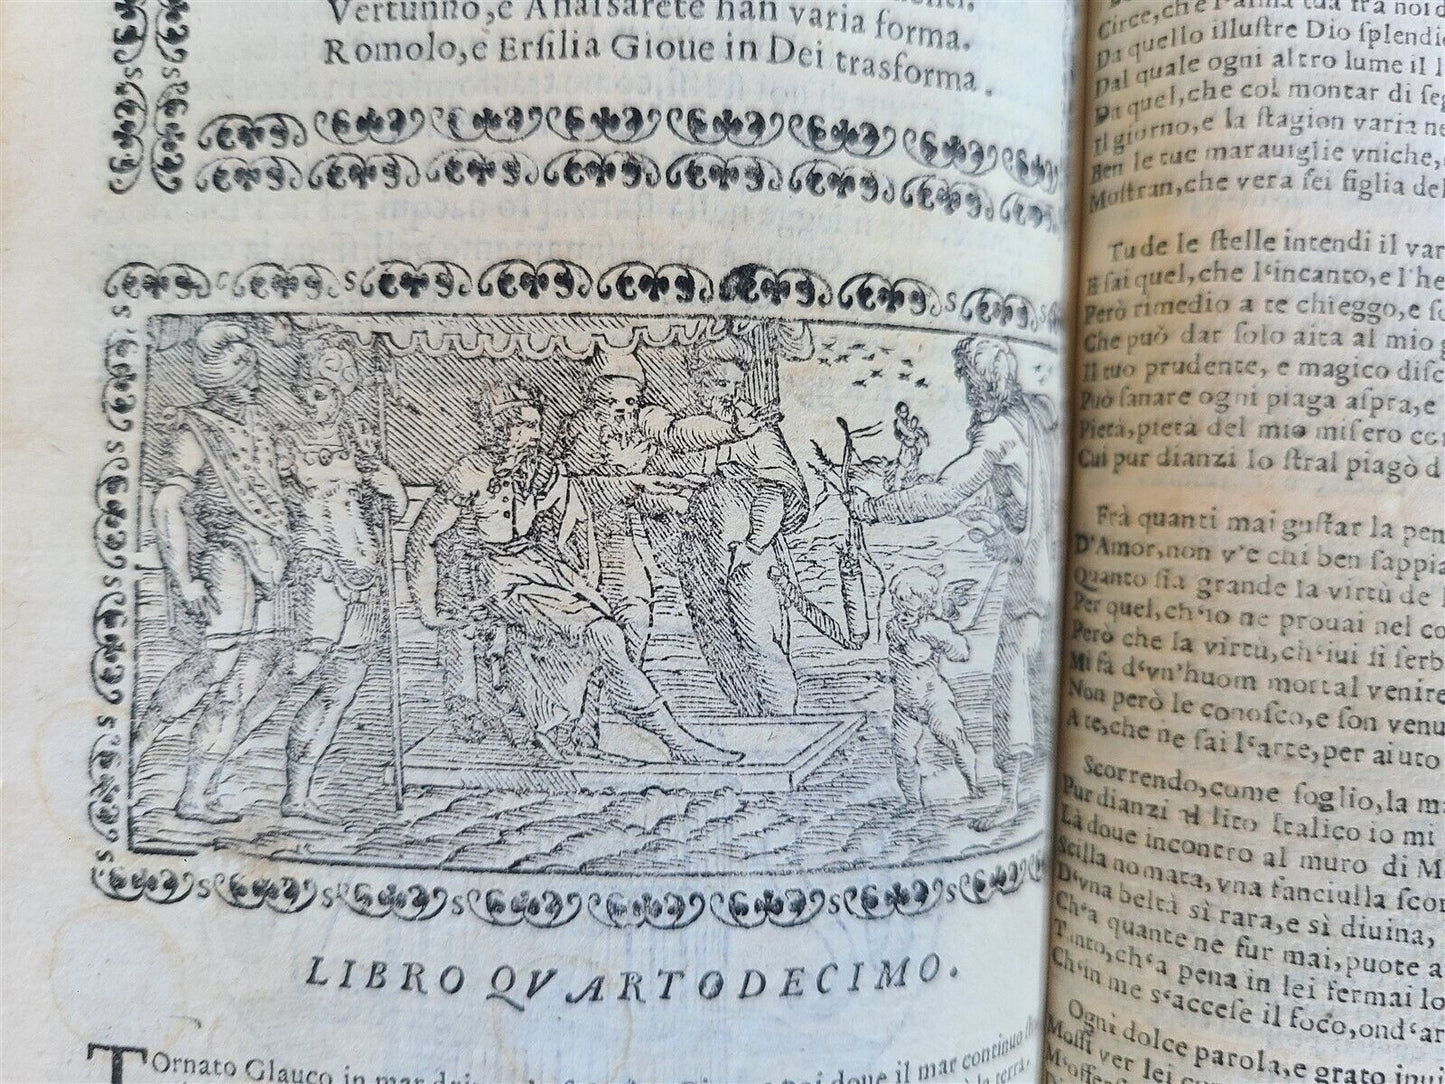 Vertunno, e Anassarete han varia forma.
Romolo, e Ersilia Gioue in Dei trasforma.
LIBRO QVARTODECIMO.
Tornato Glauco in mar
doue il mar continuo
la terra.
Circe, che l'alma tua fra noi
Da quello illustre Dio
Dal quale ogni altro lume il
Da quel, che col montar di
Il giorno, e la stagion varia
Ben le tue marauiglie vniche,
Mostran, che vera sei figlia del
Tu de le stelle intendi il
E sai quel, che l'incanto, e l'
Però rimedio a te chieggo, e
Che può dar solo aita al mio
Il tuo prudente, e magico
Può sanare ogni piaga aspra, e
Pietà, pietà del mio misero
Cui pur dianzi lo stral piagò
Frà quanti mai gustar la
D'Amor, non v'e chi ben
Quanto sia grande la virtù de
Per quel, ch'io ne prouai nel
Però che la virtù, ch'iui si
Mi fà d'vn'huom mortal venire
Non però le conosco, e son
A te, che ne sai l'arte, per aiuto
Scorrendo, come soglio, la
Pur dianzi il lito Italico io mi
Là doue incontro al muro di
Scilla nomata, vna fanciulla
D'vna beltà sì rara, e sì diuina,
Ch'a quante ne fur mai, puote
Tanto, ch'a pena in lei fermai lo
Ch'in me s'accese il foco,
Ogni dolce parola, e grato
Mossi ver lei